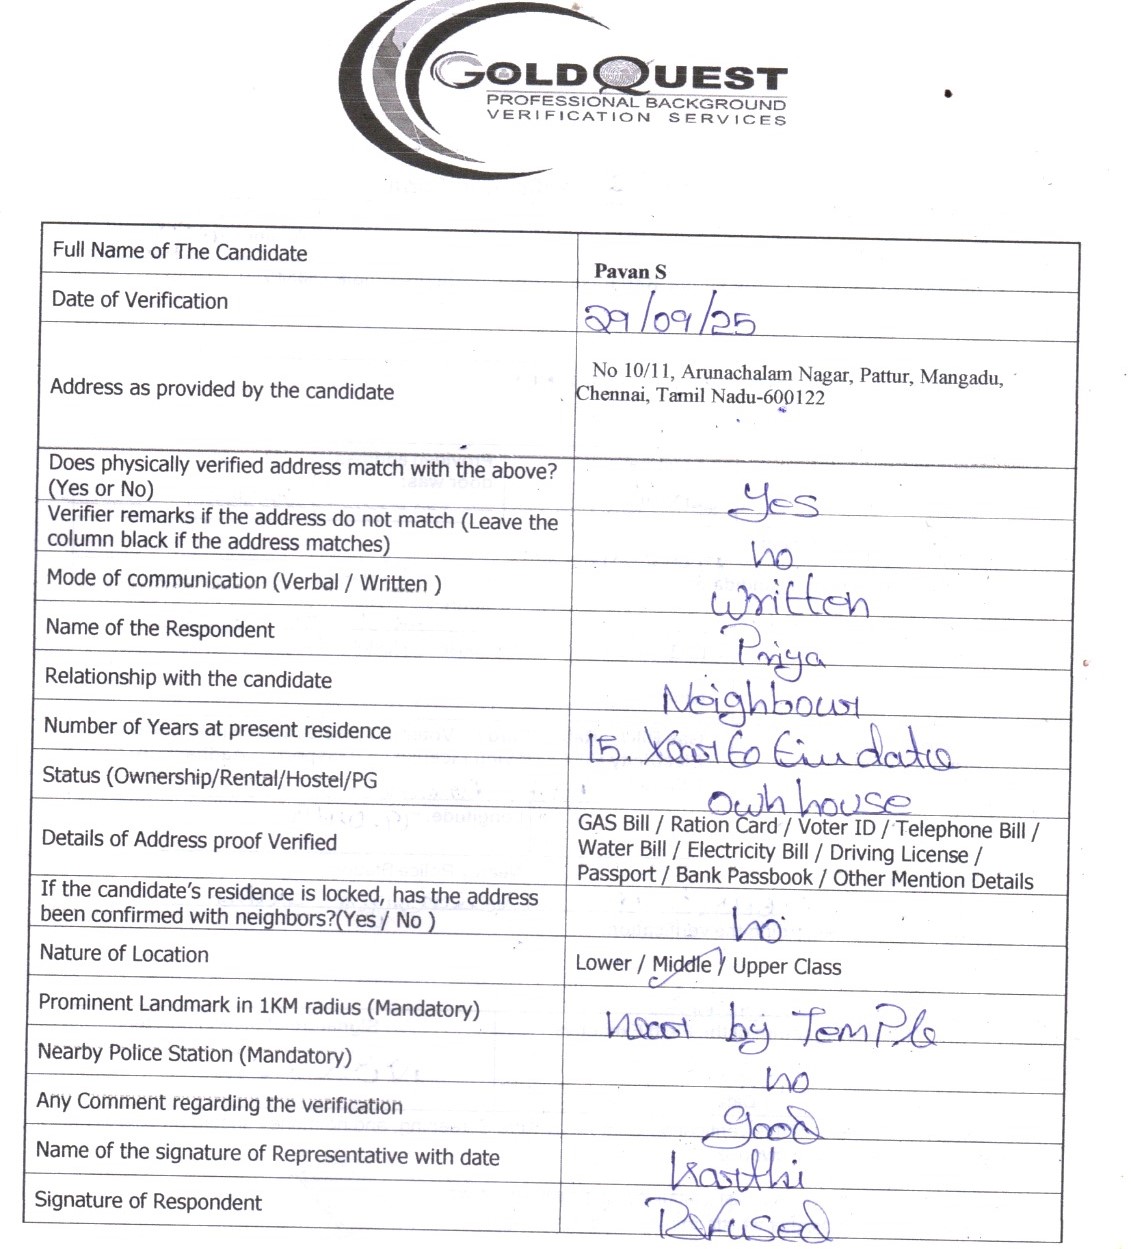 GOLDQUEST
PROFESSIONAL BACKGROUND
VERIFICATION SERVICES
Full Name of The Candidate
Pavan S
Date of Verification
29/09/25
Address as provided by the candidate
No 10/11, Arunachalam Nagar, Pattur, Mangadu,
Chennai, Tamil Nadu-600122
Does physically verified address match with the above?
(Yes or No)
Yes
Verifier remarks if the address do not match (Leave the
column black if the address matches)
no
Mode of communication (Verbal / Written )
Written
Name of the Respondent
Priya
Relationship with the candidate
Neighbour
Number of Years at present residence
15. Year to
Status (Ownership/Rental/Hostel/PG
Own house
Details of Address proof Verified
GAS Bill / Ration Card / Voter ID / Telephone Bill /
Water Bill / Electricity Bill / Driving License /
Passport / Bank Passbook / Other Mention Details
If the candidate's residence is locked, has the address
been confirmed with neighbors?(Yes / No )
no
Nature of Location
Lower / Middle / Upper Class
Prominent Landmark in 1KM radius (Mandatory)
near by Temple
Nearby Police Station (Mandatory)
no
Any Comment regarding the verification
good
Name of the signature of Representative with date
Karthi
Signature of Respondent
Refused